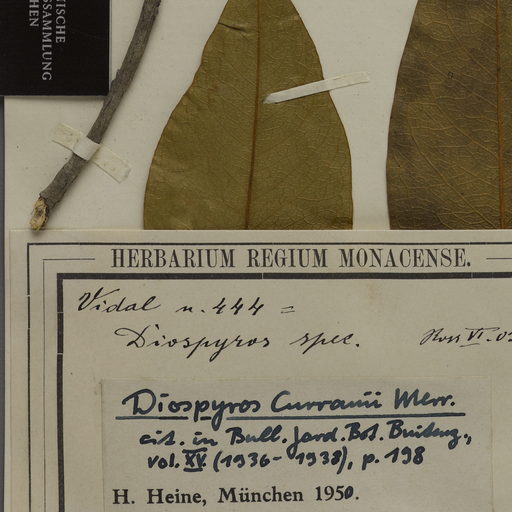 ISCHE
SSAMMLUNG
CHEN
HERBARIUM REGIUM MONACENSE.
Vidal n. 444 =
Diospyros spec.
Ross VI. 05
Diospyros Curranii Merr.
cit. in Bull. Jard. Bot. Buitenz.,
vol. XV (1936-1938), p. 198
H. Heine, München 1950.